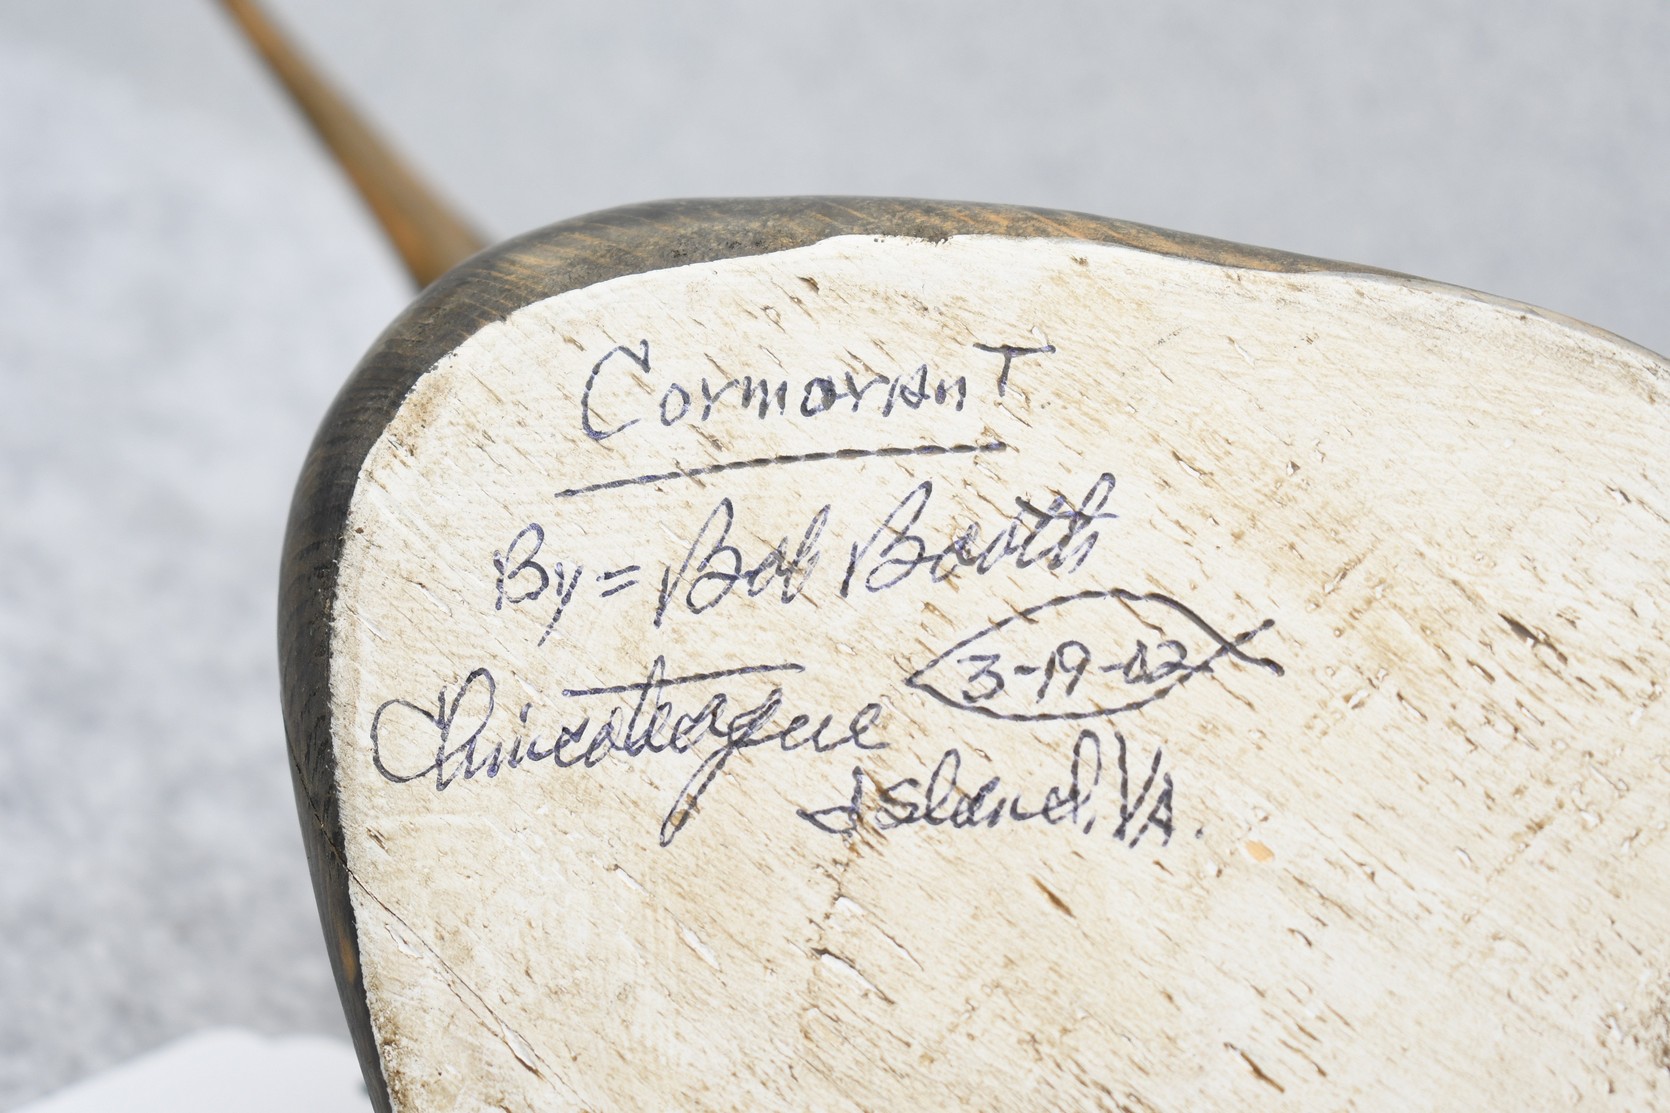 CormoranT
By = Bob Booth
3-19-02
Chincoteague
Island, VA.